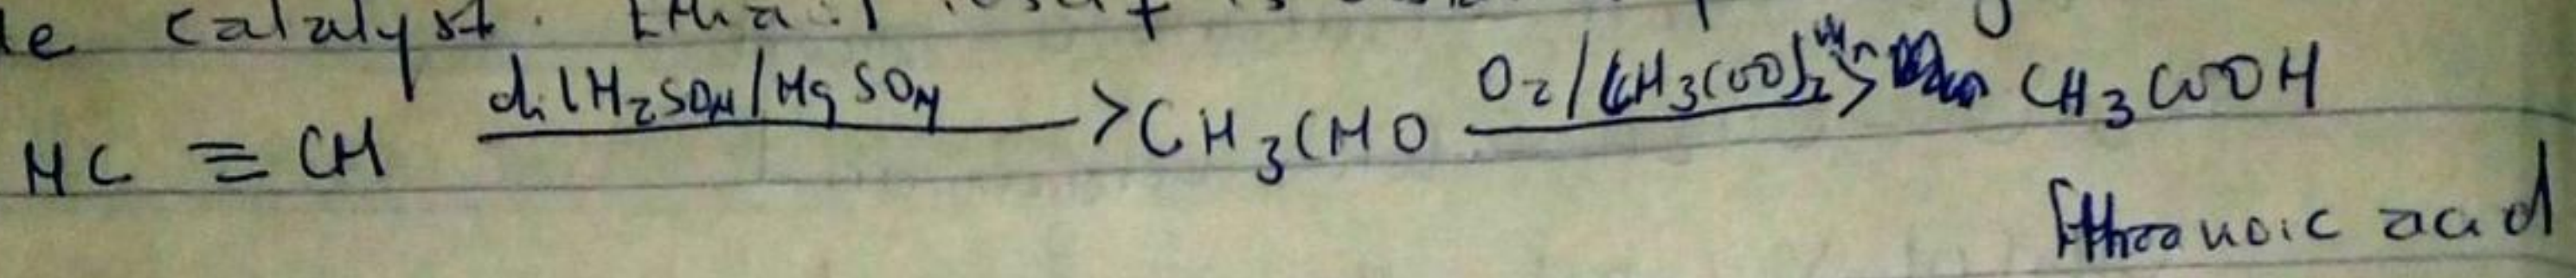 le catalyst. Ethanal itself is
HC ≡ CH dil H₂SO₄/HgSO₄ > CH₃CHO O₂/(CH₃COO)₂Mn > CH₃COOH
Ethanoic acid